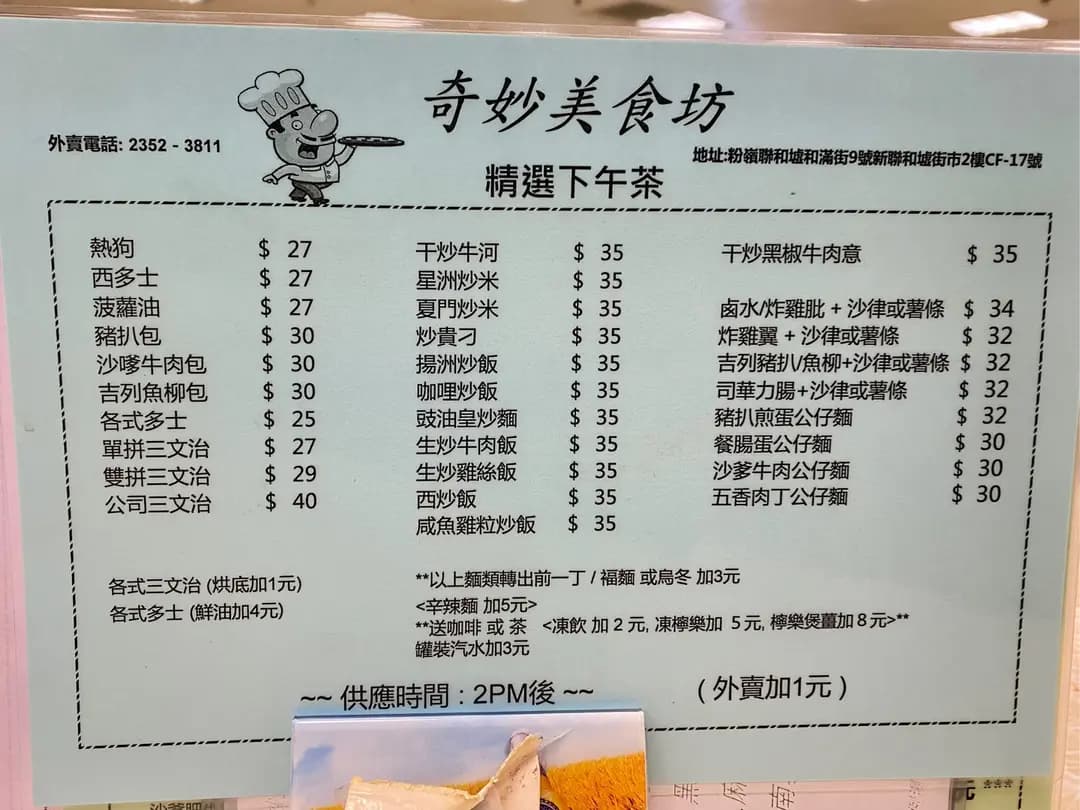 奇妙美食坊
外賣電話: 2352 - 3811
地址:粉嶺聯和墟和滿街9號新聯和墟街市2樓CF-17號
精選下午茶
熱狗 $ 27
西多士 $ 27
菠蘿油 $ 27
豬扒包 $ 30
沙嗲牛肉包 $ 30
吉列魚柳包 $ 30
各式多士 $ 25
單拼三文治 $ 27
雙拼三文治 $ 29
公司三文治 $ 40
干炒牛河 $ 35
星洲炒米 $ 35
夏門炒米 $ 35
炒貴刁 $ 35
揚洲炒飯 $ 35
咖哩炒飯 $ 35
豉油皇炒麵 $ 35
生炒牛肉飯 $ 35
生炒雞絲飯 $ 35
西炒飯 $ 35
咸魚雞粒炒飯 $ 35
干炒黑椒牛肉意 $ 35
鹵水/炸雞肶 + 沙律或薯條 $ 34
炸雞翼 + 沙律或薯條 $ 32
吉列豬扒/魚柳+沙律或薯條 $ 32
司華力腸+沙律或薯條 $ 32
豬扒煎蛋公仔麵 $ 32
餐腸蛋公仔麵 $ 30
沙爹牛肉公仔麵 $ 30
五香肉丁公仔麵 $ 30
各式三文治 (烘底加1元)
各式多士 (鮮油加4元)
**以上麵類轉出前一丁 / 福麵 或烏冬 加3元
<辛辣麵 加5元>
**送咖啡 或 茶 <凍飲 加 2 元, 凍檸樂加 5元, 檸樂煲薑加８元>**
罐裝汽水加3元
~~ 供應時間 : 2PM後 ~~
( 外賣加1元 )